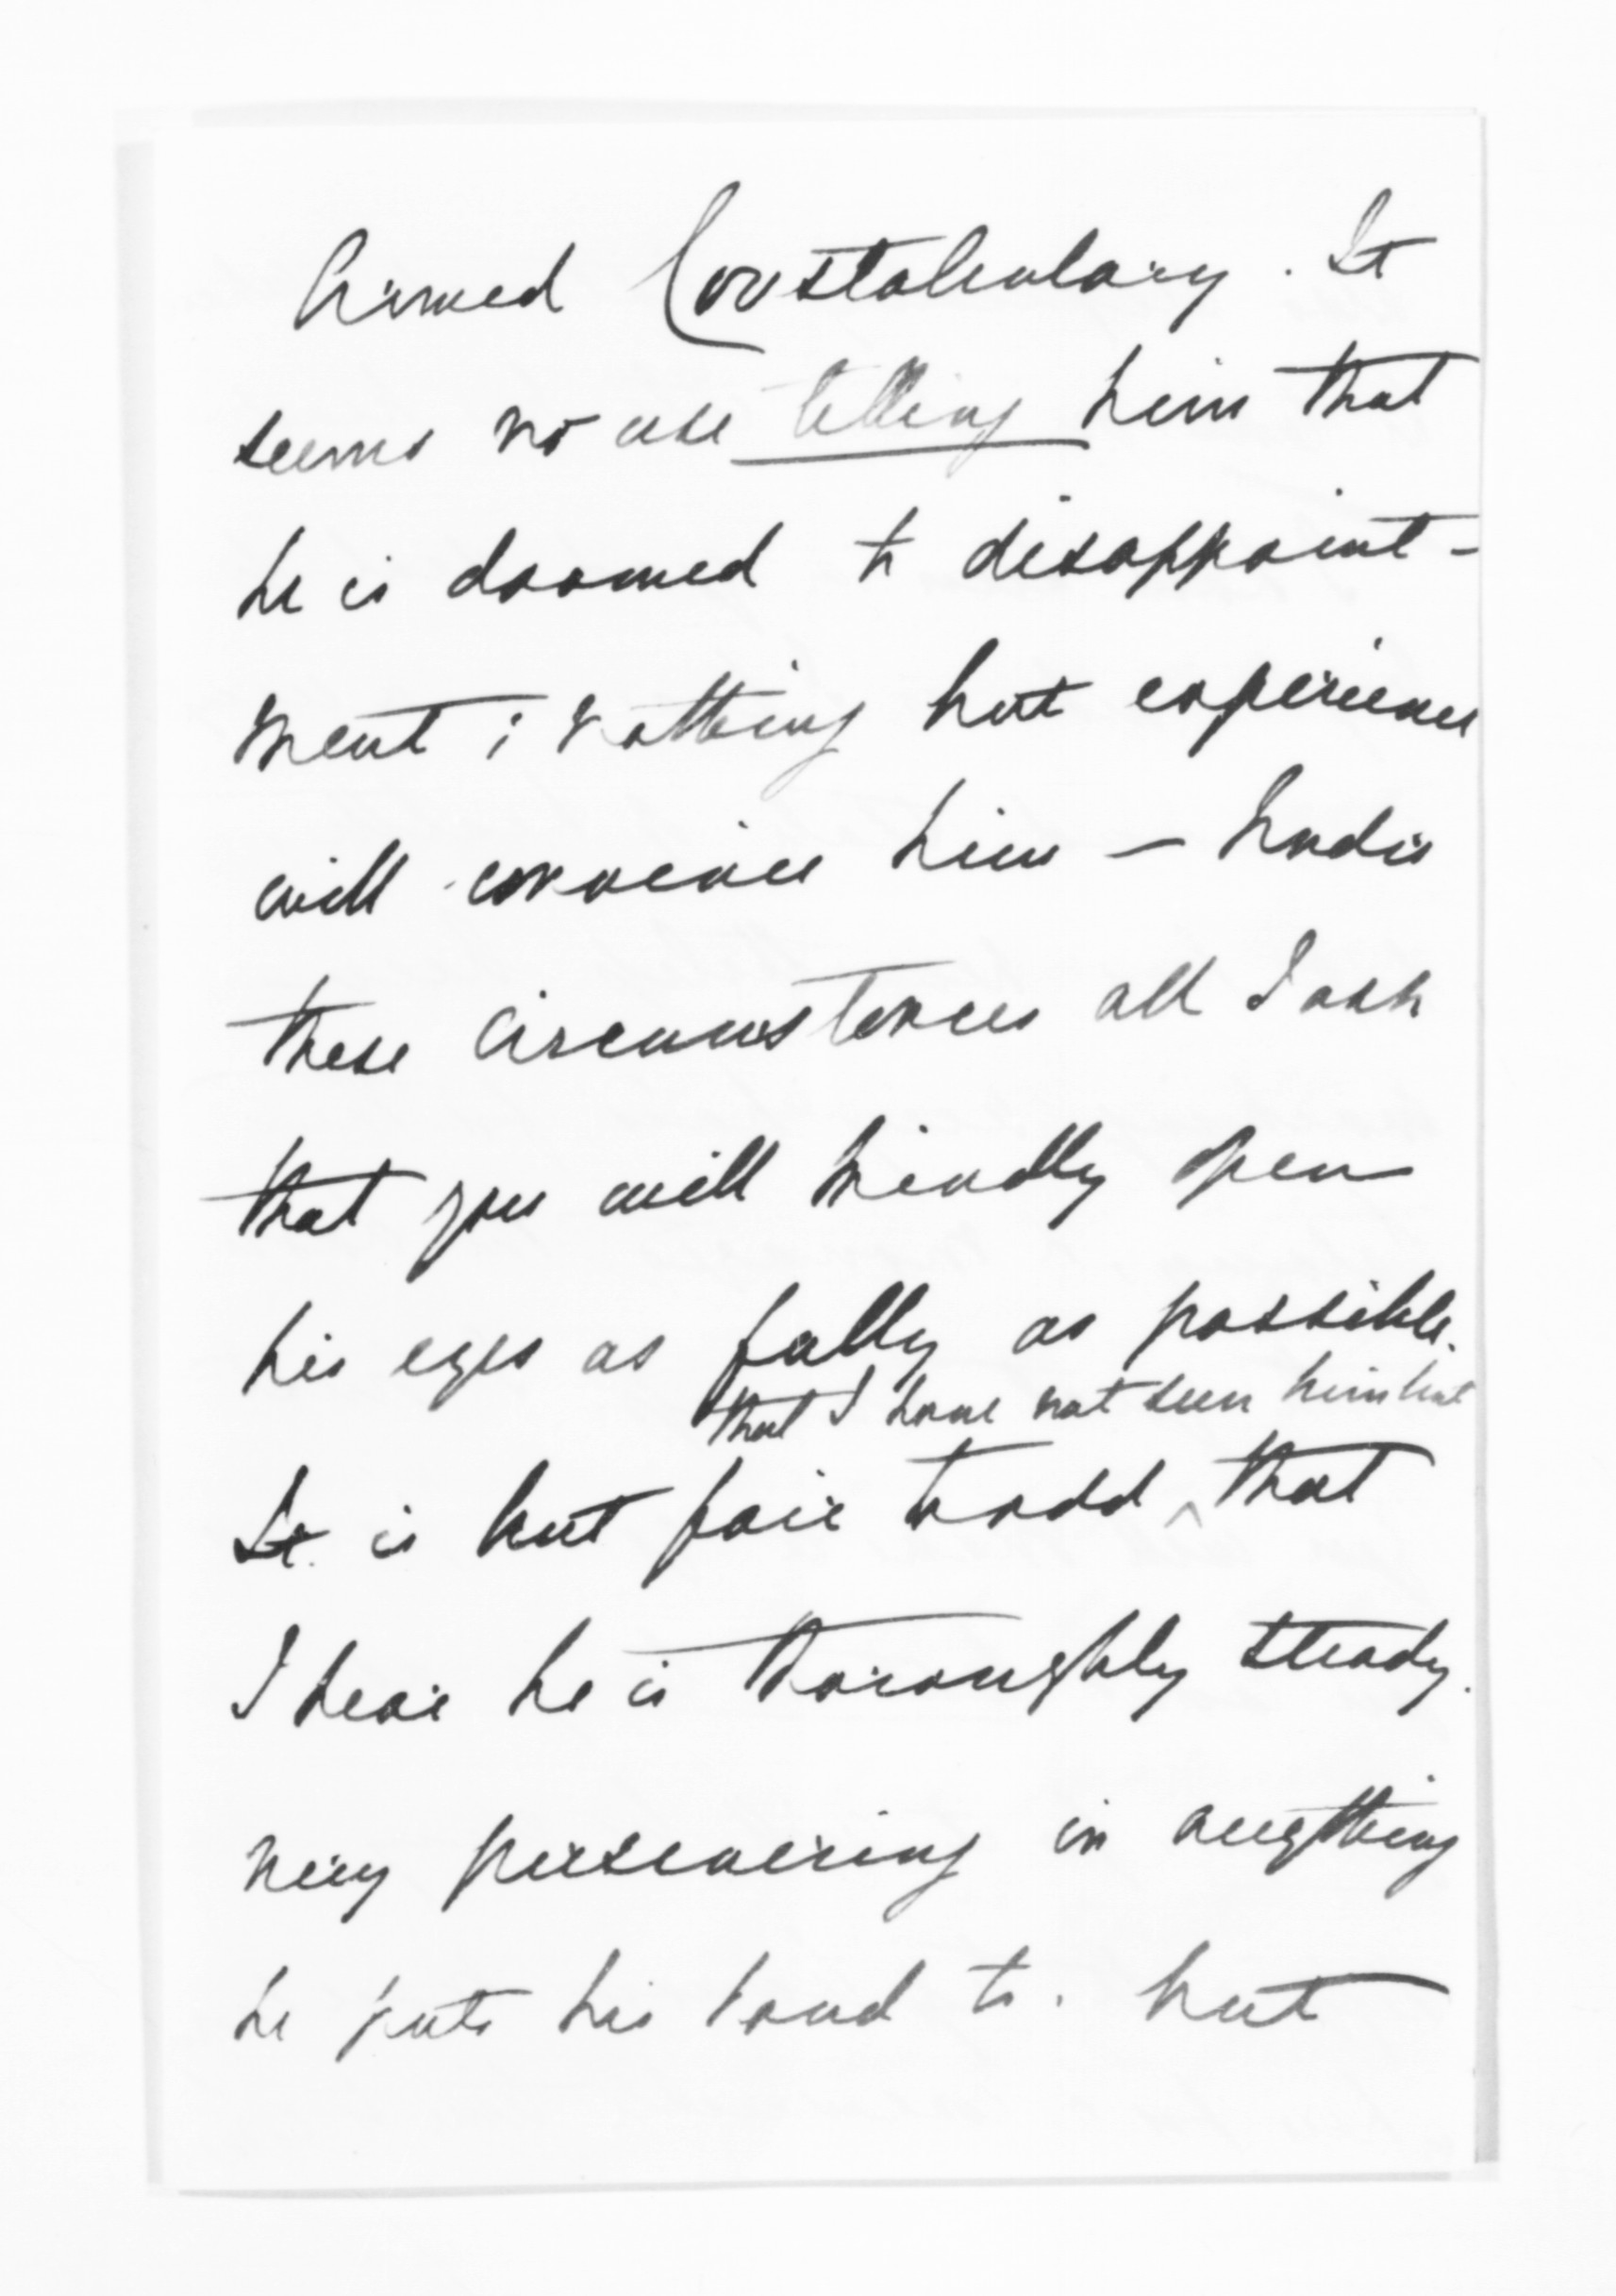 Armed Constabulary. It
seems no use telling him that
he is doomed to disappoint-
ment; nothing but experience
will convince him — Under
these circumstances all I ask
that you will kindly open
his eyes as fully as possible.
that I have not seen him but
It is but fair to add ^ that
I hear he is thoroughly steady.
very persevering in anything
he puts his hand to. but